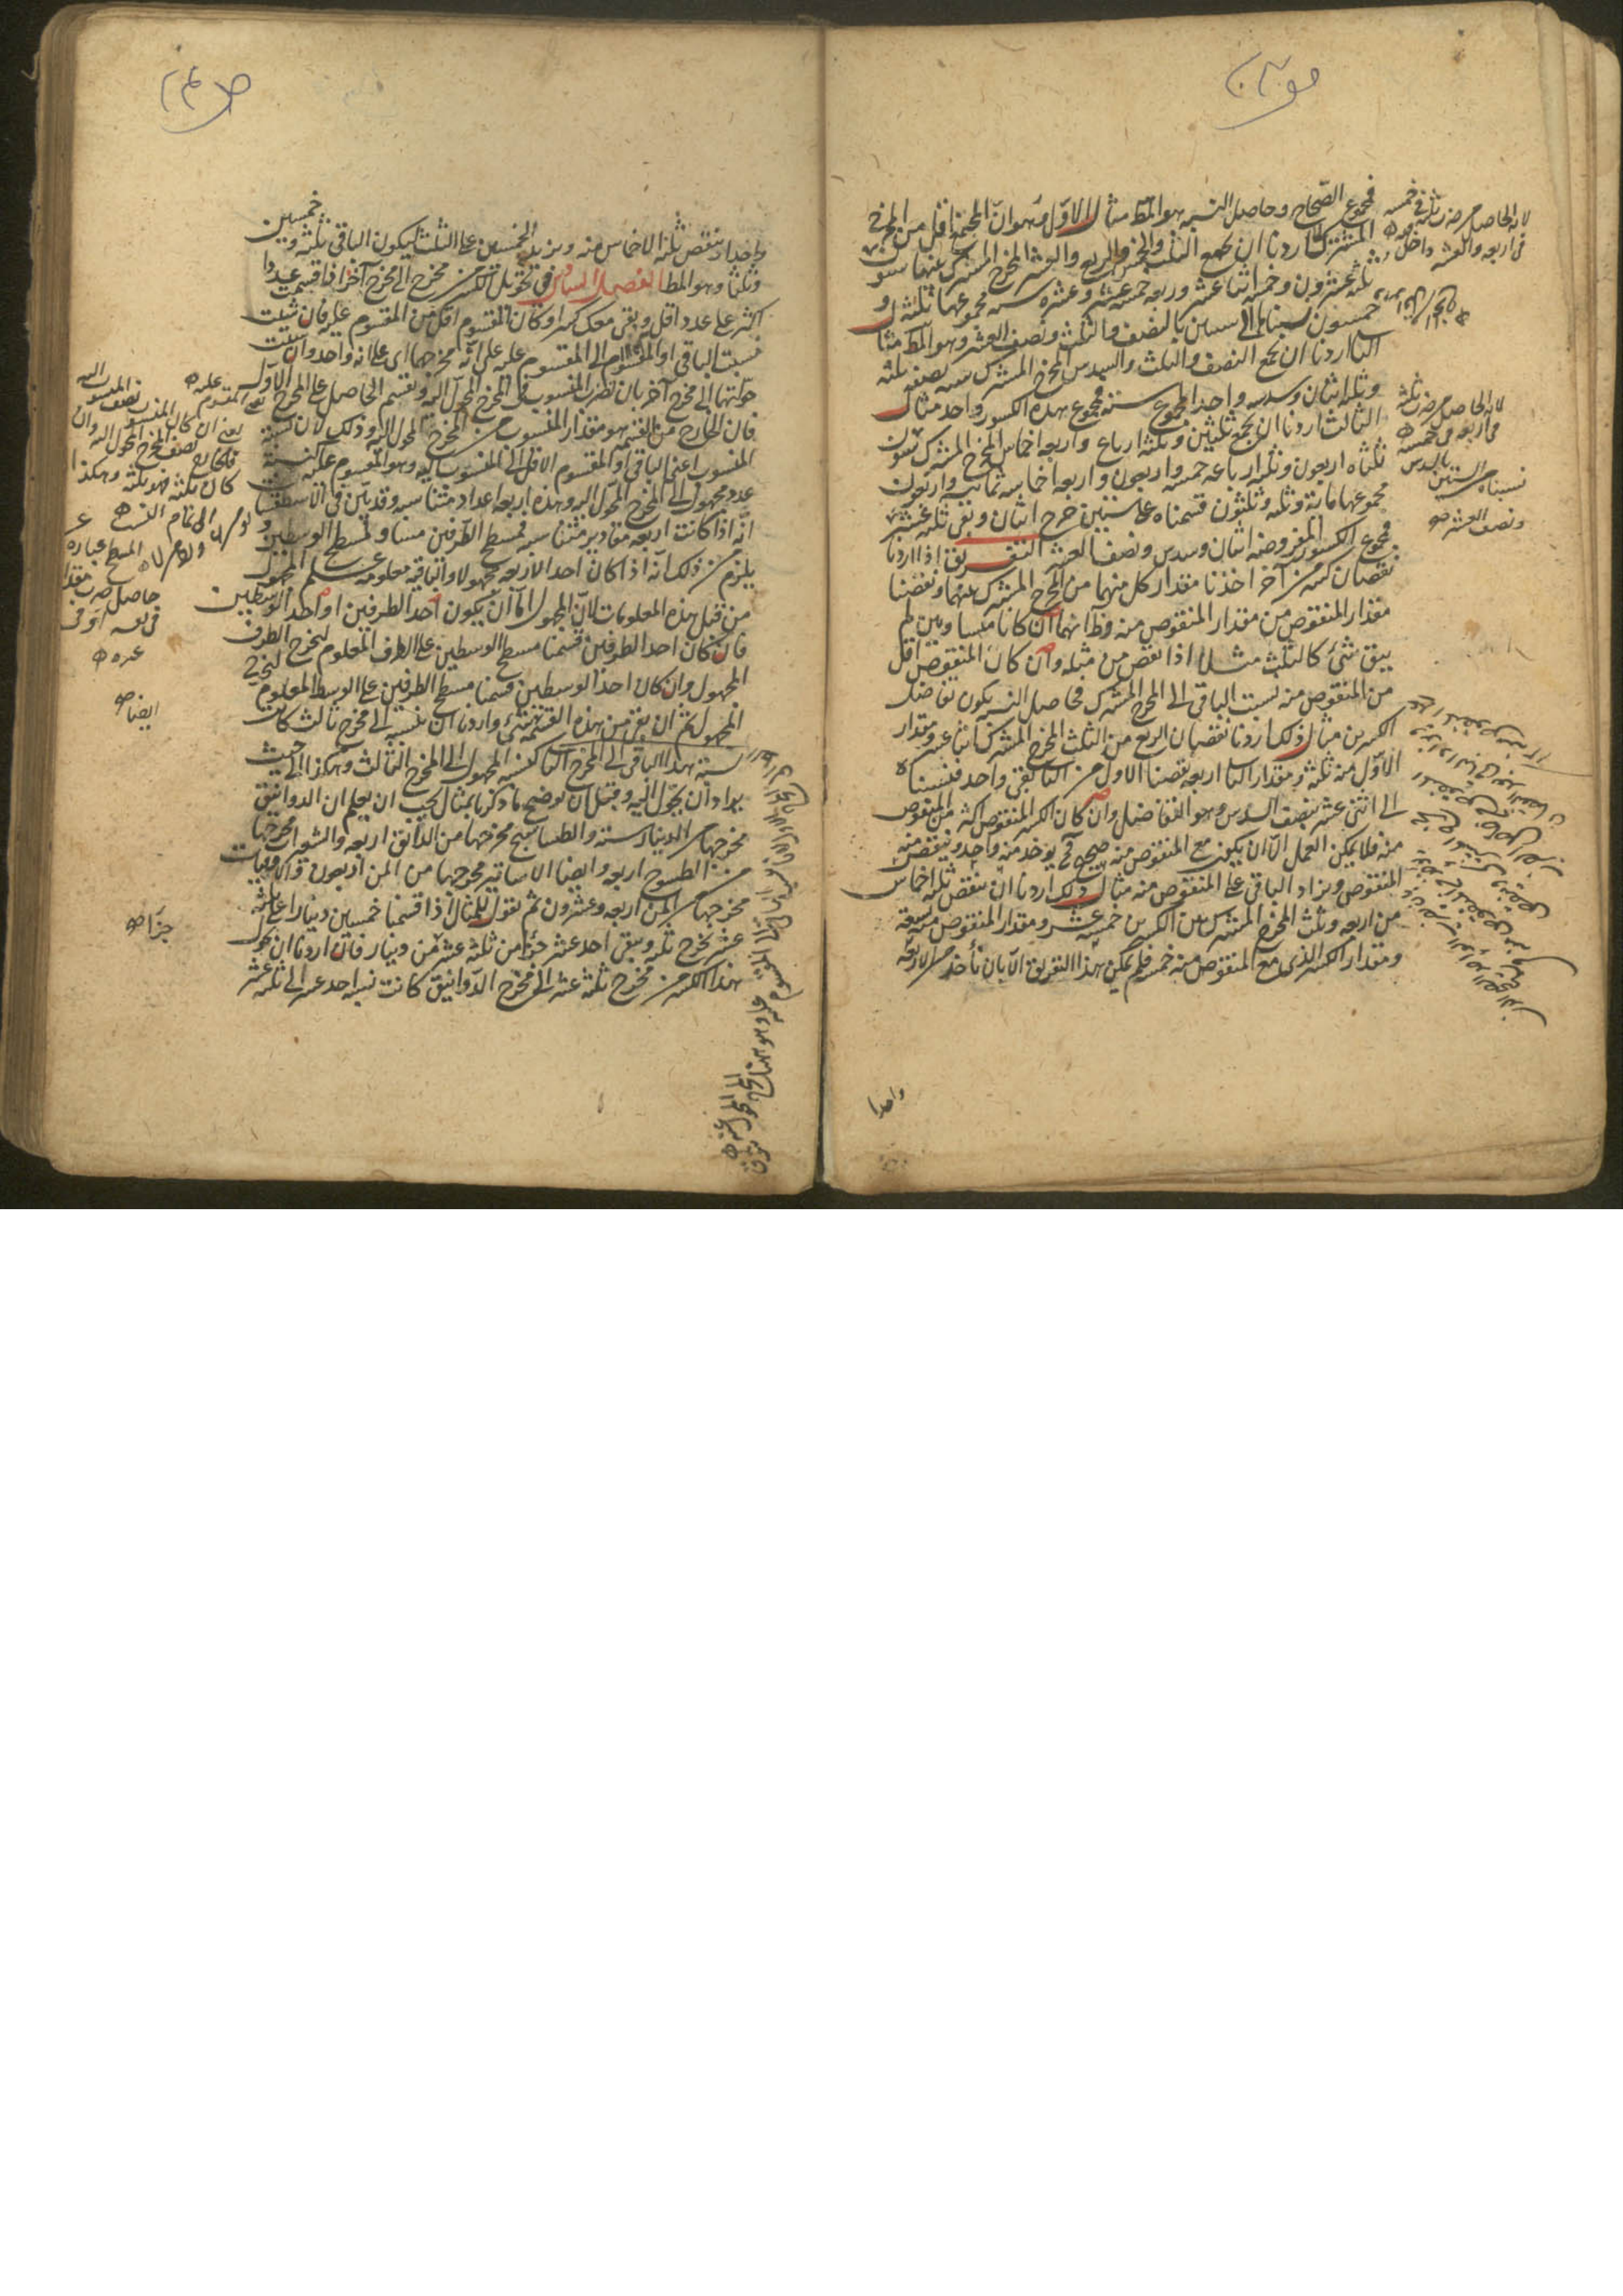 فمجموع الصحاح وحاصل النسبة هو المط مثال الاول وهو ان المجتمع اقل من المخرج
المشترك اردنا ان نجمع الثلث والخمس والربع والعشر المخرج المشترك عنها ستون
ثلثه عشرون وخمسه اثنا عشر وربعه خمسة عشر وعشره ستة مجموعها ثلثة و
خمسون نسبناها الى ستين بالنصف والثلث ونصف العشر وهو المط مثال
الثانى اردنا ان نجمع النصف والثلث والسدس المخرج المشترك ستة نصفه ثلثة
وثلثه اثنان وسدسه واحد المجموع ستة فمجموع هذه الكسور واحد مثال
الثالث اردنا ان نجمع ثلثين وثلثة ارباع واربعة اخماس المخرج المشترك ستون
ثلثاه اربعون وثلثة ارباعه خمسة واربعون واربعة اخماسه ثمانية واربعون
مجموعها مائة وثلثة وثلثون قسمناه على ستين خرج اثنان وبقى ثلثة عشر
فمجموع الكسور المفروضة اثنان وسدس ونصف العشر التفريق اذا اردنا
نقصان كسر من آخر اخذنا مقدار كل منهما من المخرج المشترك عنهما ونقصنا
مقدار المنقوص من مقدار المنقوص منه وظ انهما ان كانا متساويين لم
يبق شئ كالثلث مثلا اذا نقص من مثله وان كان المنقوص اقل
من المنقوص منه نسبت الباقى الى المخرج المشترك فحاصل النسبة يكون تفاضل
الكسرين مثال ذلك اردنا نقصان الربع من الثلث المخرج المشترك اثنا عشر ومقدار
الاول منه ثلثة ومقدار الثانى اربعة نقصنا الاول من الثانى بقى واحد فنسبناه
الى اثنى عشر بنصف السدس وهو التفاضل وان كان الكسر المنقوص اكثر من المنقوص
منه فلا يمكن العمل الا ان يكون مع المنقوص منه صحيح كى يوخذ منه واحد وينقص منه
المنقوص ويزاد الباقى على المنقوص منه مثال ذلك اردنا ان ننقص ثلثة اخماس
من اربعة وثلث المخرج المشترك بين الكسرين خمسة عشر ومقدار المنقوص منه تسعة
ومقدار الكسر الذى مع المنقوص منه خمسة فلم يمكن هذا التفريق الا بان نأخذ من الاربعة
واحدا
لانه الحاصل من ضرب ثلثة فى خمسة
فى اربعة والعشر داخل
لانه الحاصل من ضرب ثلثة
فى اربعة فى خمسة
نسبناه الى الستين بالسدس
ونصف العشر
خمسين
واحدا وننقص ثلثة الاخماس منه ونزيد الخمسين على الثلث ليكون الباقى ثلثة و
وثلثا وهو المط الفصل السادس فى تحويل الكسر من مخرج الى مخرج آخر اذا قسمت عددا
اكثر على عدد اقل وبقى معك كسر او كان المقسوم اقل من المقسوم عليه فان شئت
نسبت الباقى او المقسوم الى المقسوم عليه على انه مخرجها اى على انه واحد وان شئت
حولتها الى مخرج آخر بان تضرب المنسوب فى المخرج المحول اليه وتقسم الحاصل على المخرج الاول
فان الخارج من القسمة هو مقدار المنسوب من المخرج المحول اليه وذلك لان نسبة
المنسوب اعنى الباقى او المقسوم الاقل الى المنسوب اليه وهو المقسوم عليه كنسبة
عدد مجهول الى المخرج المحول اليه وهذه اربعة اعداد متناسبة وقد تبين فى الاسطقسات
انه اذا كانت اربعة مقادير متناسبة فمسطح الطرفين مساو لمسطح الوسطين و
يلزم من ذلك انه اذا كان احد الاربعة مجهولا والباقية معلومة علم المجهول
من قبل هذه المعلومات لان المجهول اما ان يكون احد الطرفين او احد الوسطين
فان كان احد الطرفين قسمنا مسطح الوسطين على الطرف المعلوم ليخرج الطرف
المجهول وان كان احد الوسطين قسمنا مسطح الطرفين على الوسط المعلوم ليخرج
المجهول ثم ان بقى من هذه القسمة شئ واردنا ان ننسبه الى مخرج ثالث كان
نسبة هذا الباقى الى المخرج الثانى كنسبة المجهول الى المخرج الثالث وهكذا الى حيث
يراد ان يحول اليه وقبل ان نوضح ما ذكرنا بمثال يجب ان يعلم ان الدوانيق
مخرجها من الدينار ستة والطساسيج مخرجها من الدانق اربعة والشعيرات مخرجها
من الطسوج اربعة وايضا الاساتير مخرجها من المن اربعون والاوقيات
مخرجها من المن اربعة وعشرون ثم نقول للمثال اذا قسمنا خمسين دينارا على ثلثة
عشر يخرج ثلثة ويبقى احد عشر جزءا من ثلثة عشر من دينار فان اردنا ان نحول
هذا الكسر من مخرج ثلثة عشر الى مخرج الدوانيق كانت نسبة احد عشر الى ثلثة عشر
يعنى ان كان المنسوب نصف المنسوب اليه
فالخارج نصف المخرج المحول اليه وان
كان ثلثه فهو ثلثه وهكذا
المسطح عبارة عن
حاصل ضرب مقدار
ايضا
جزآ